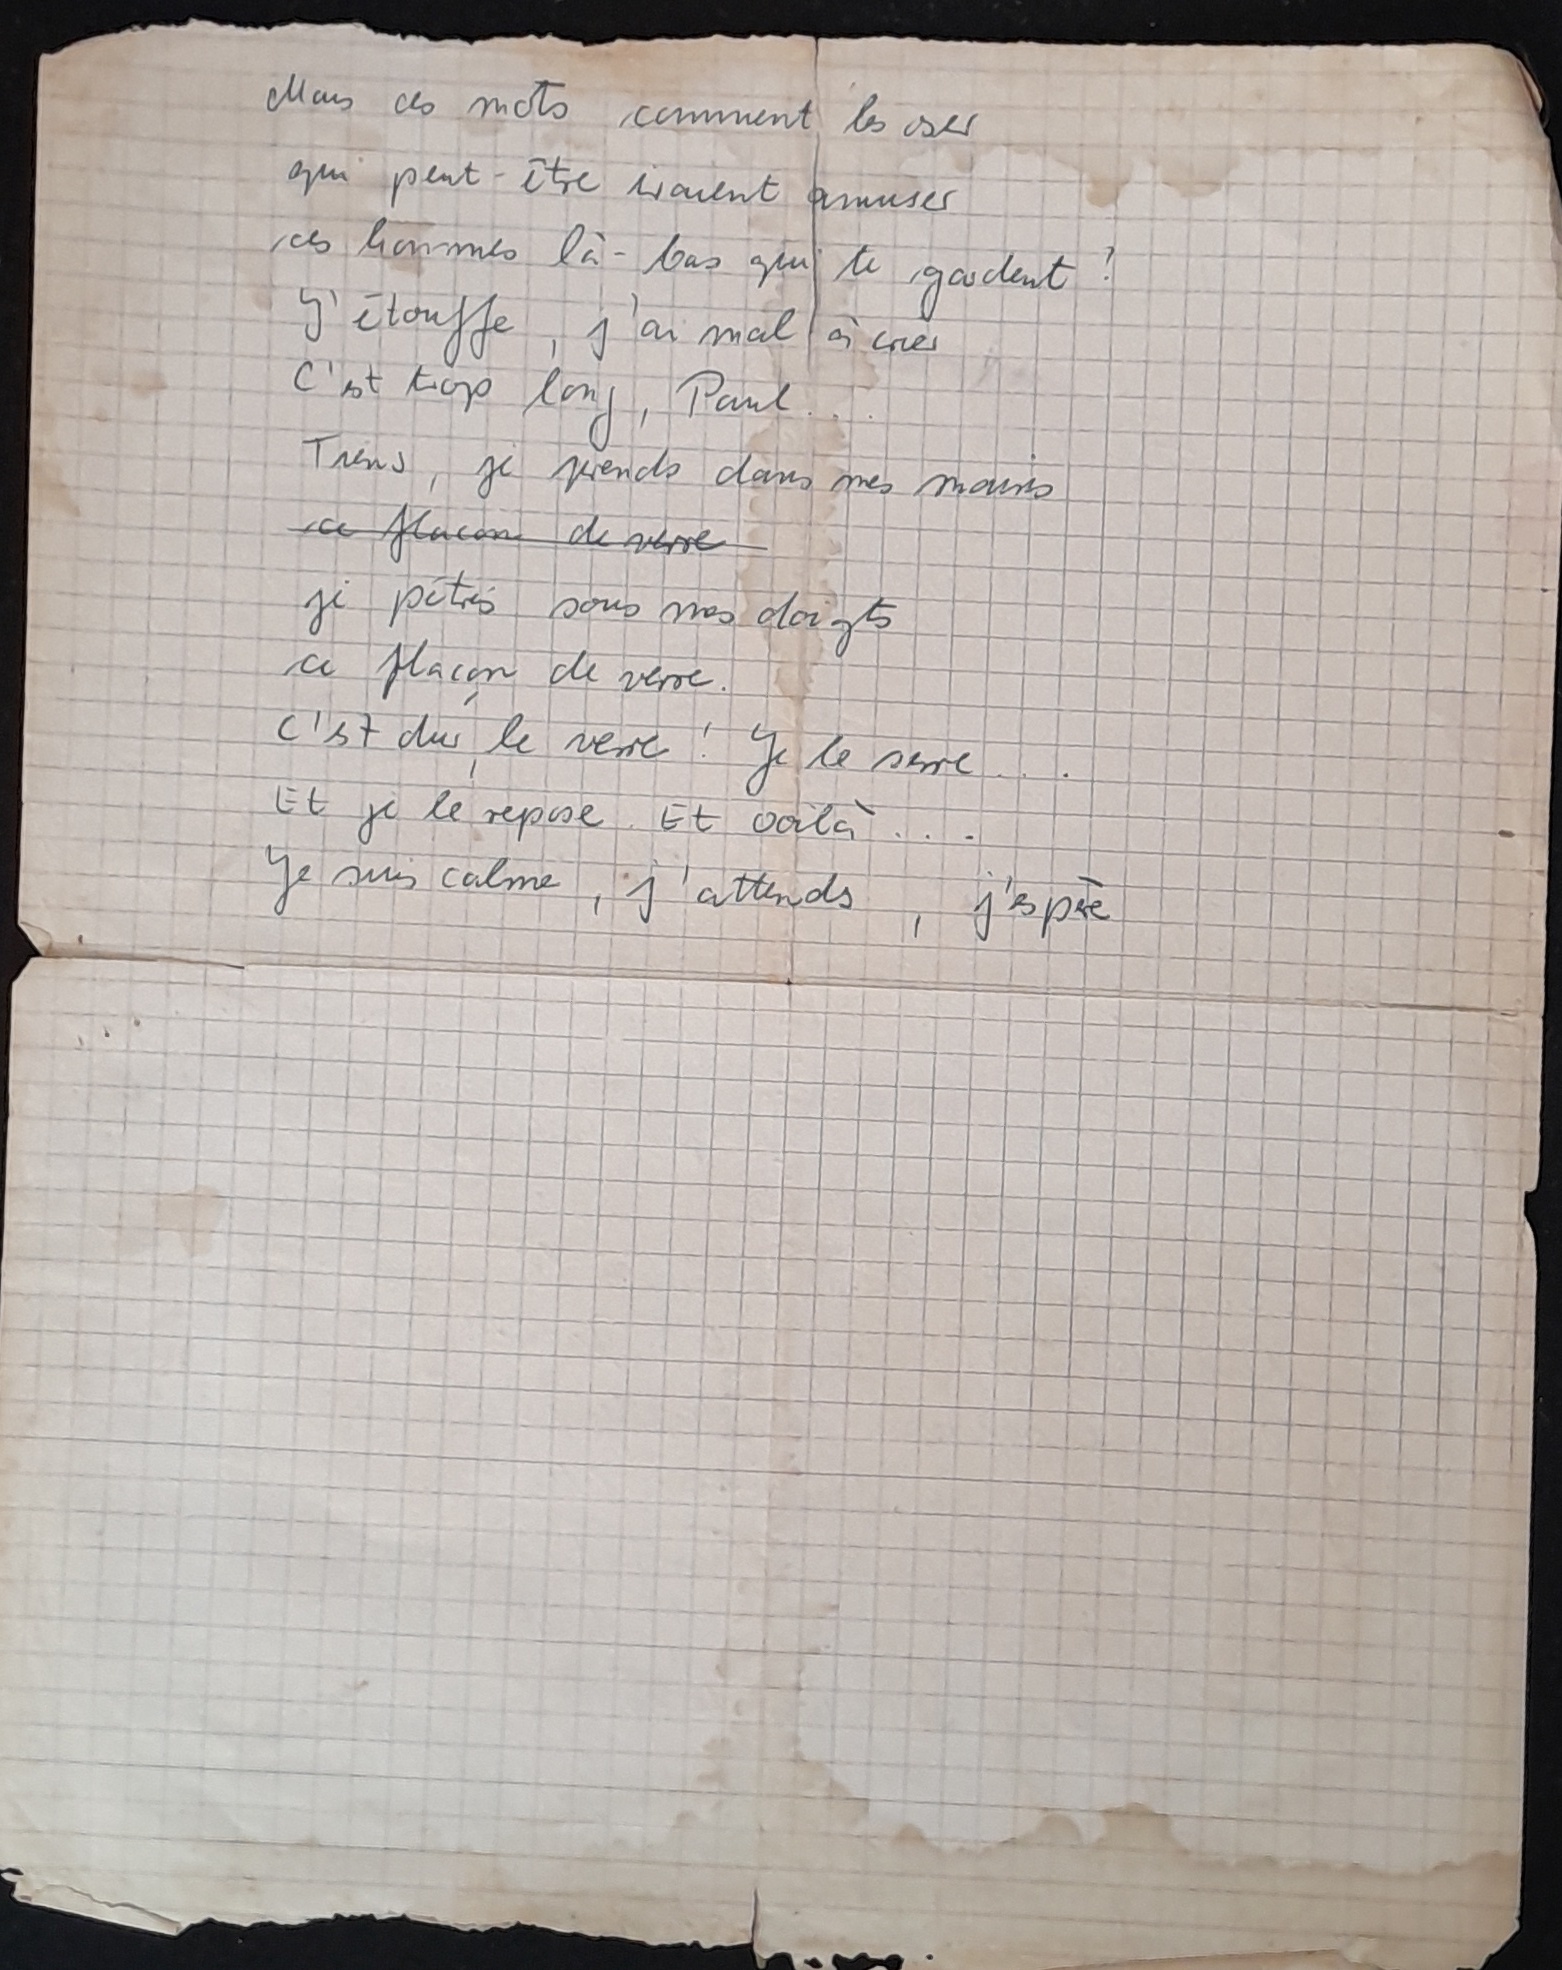 Mais ces mots comment les oser
qui peut-être iraient amuser
ces hommes là-bas qui te gardent ?
J'étouffe, j'ai mal à crier
C'est trop long, Paul....
Tiens, je prends dans mes mains
ce flacon de verre
je pétris sous mes doigts
ce flacon de verre.
C'est dur, le verre ! Je le serre....
Et je le repose. Et voilà....
Je suis calme, j'attends, j'espère